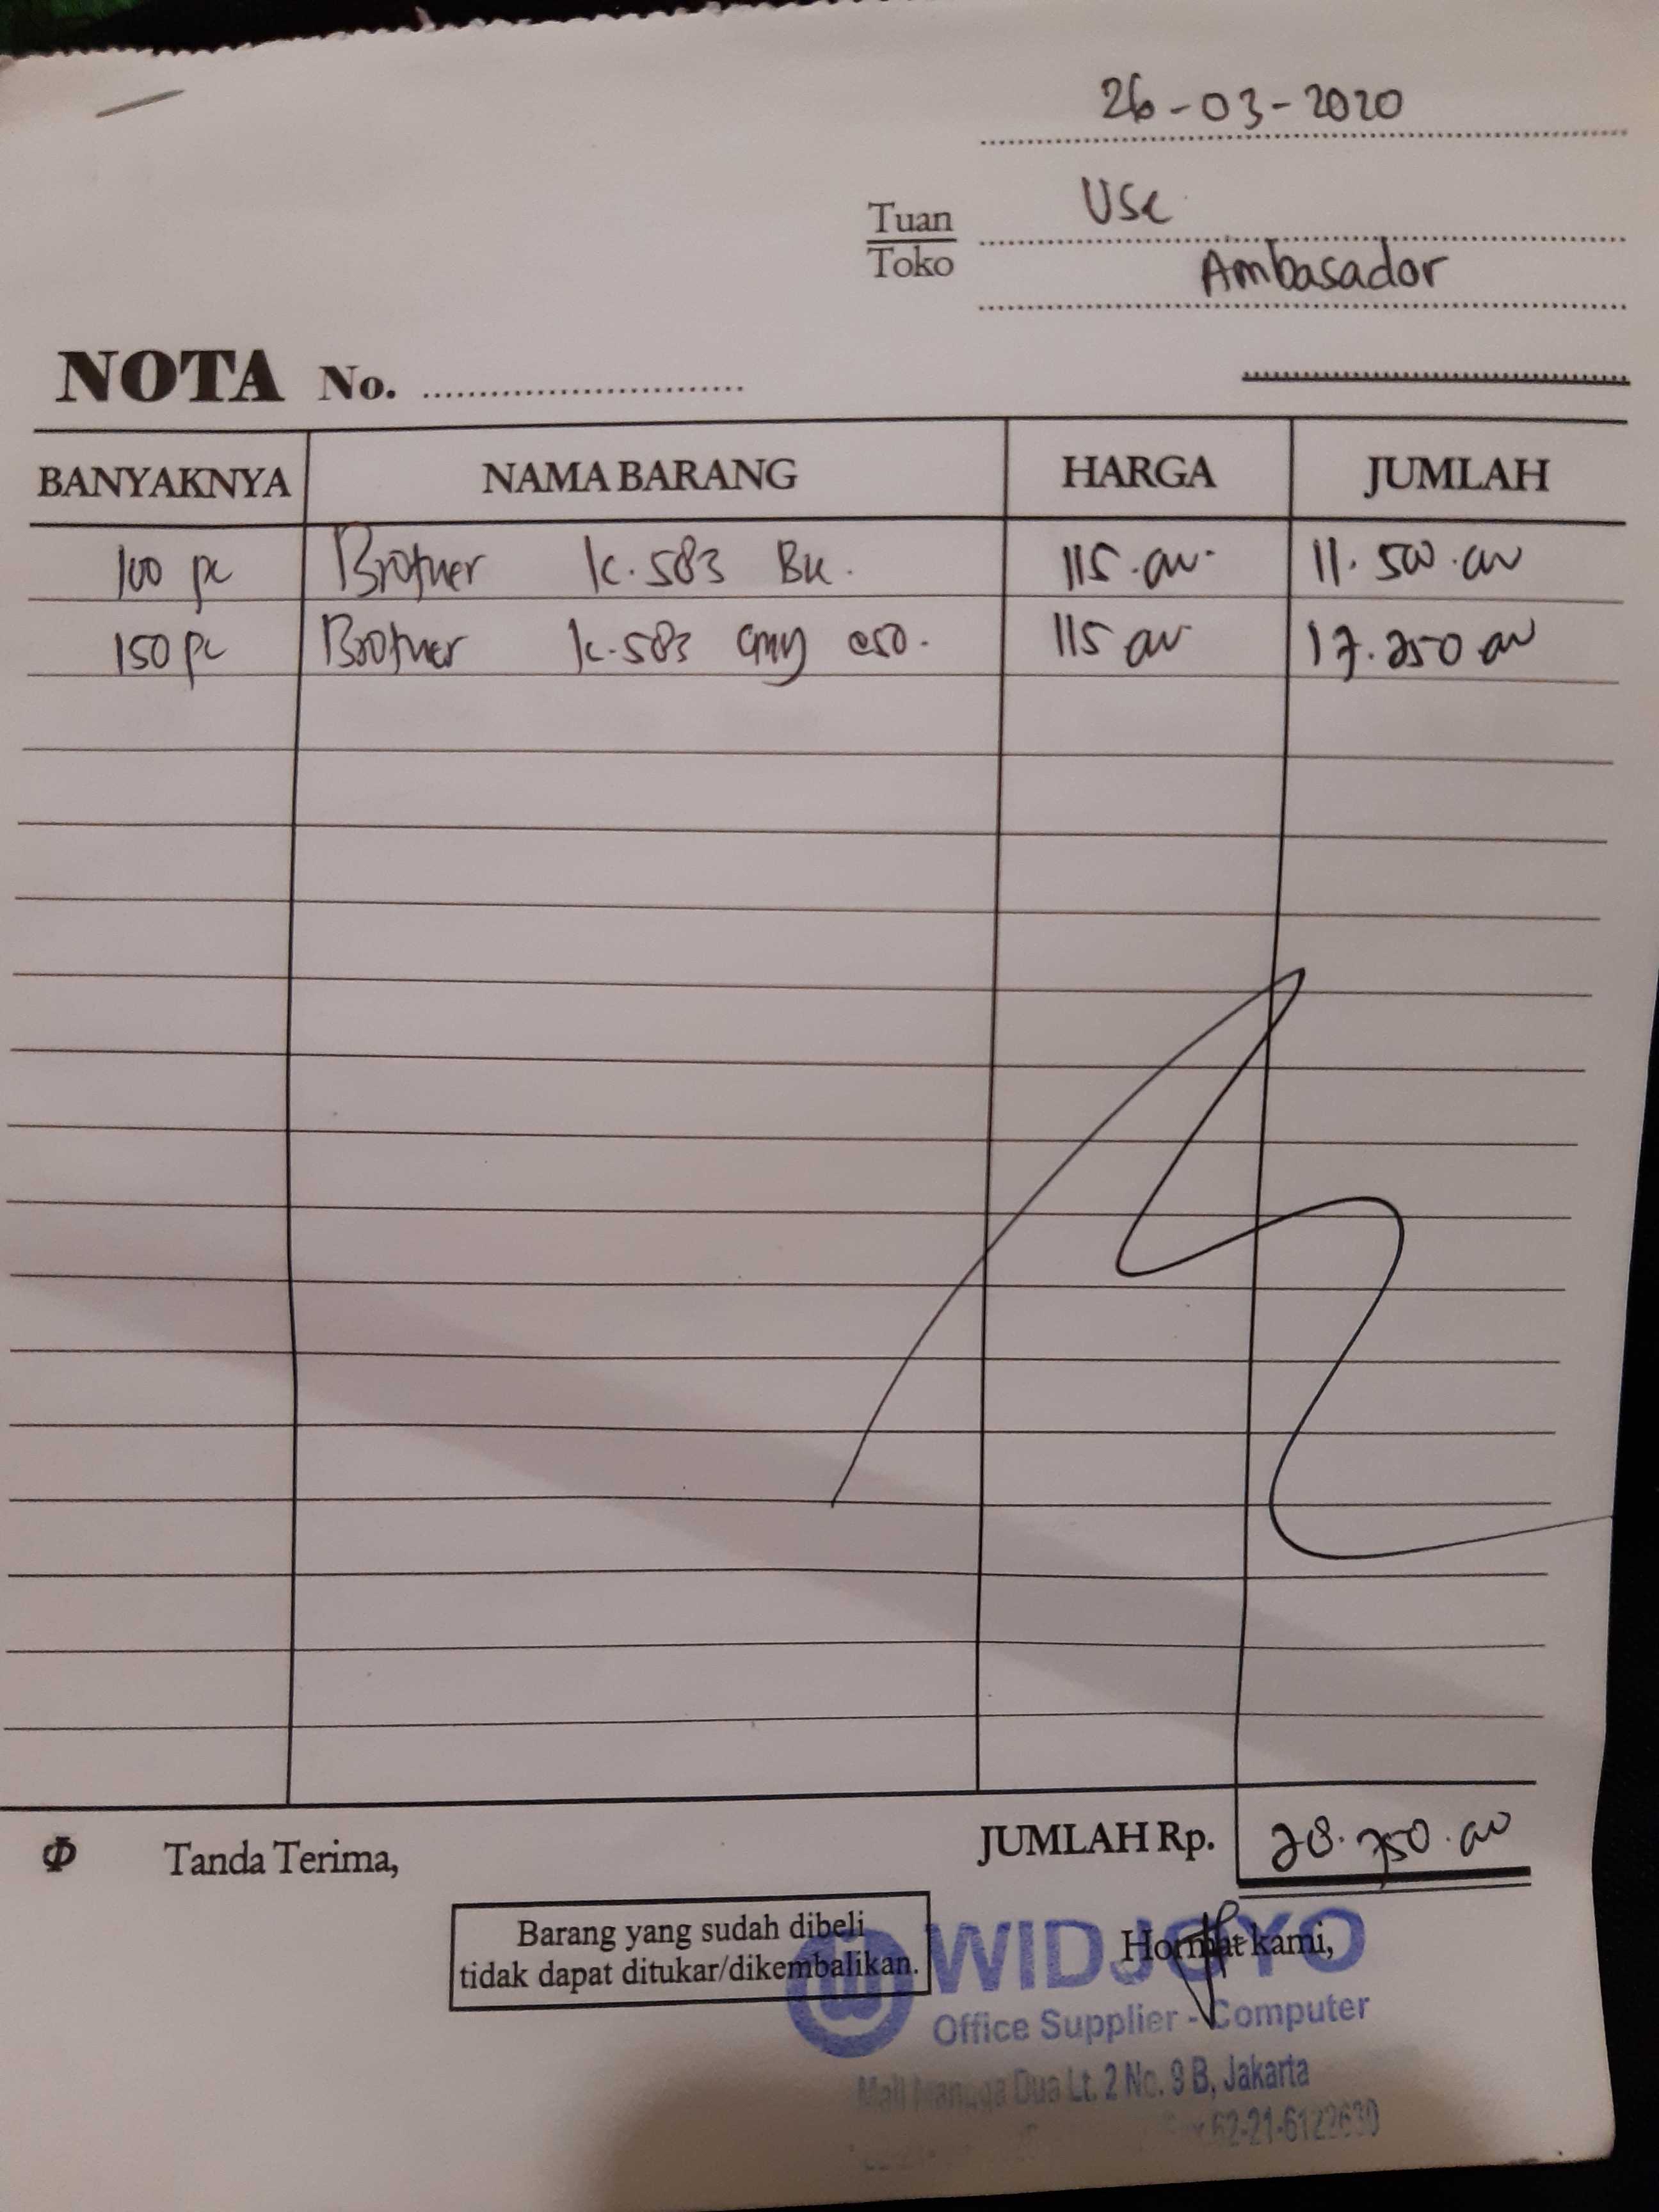 26-03-2020
Tuan
Toko
Usc
Ambasador
NOTA No.
BANYAKNYA NAMA BARANG HARGA JUMLAH
100 pc Brother lc.583 Bk. 115.000 11.500.000
150 pc Brother lc.583 cmy @50. 115 000 17.250 000
Φ Tanda Terima, JUMLAH Rp. 28.750.000
Barang yang sudah dibeli
tidak dapat ditukar/dikembalikan.
Hormat kami,
WIDJOYO
Office Supplier - Computer
Mall Mangga Dua Lt. 2 No. 9 B, Jakarta
62-21-6122630